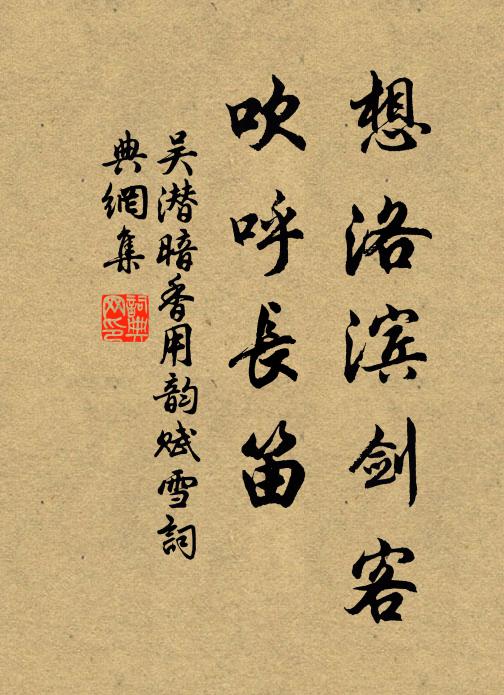 想洛滨剑客
吹呼長笛
吴潜暗香用韵赋雪詞
典網集
詞典网印